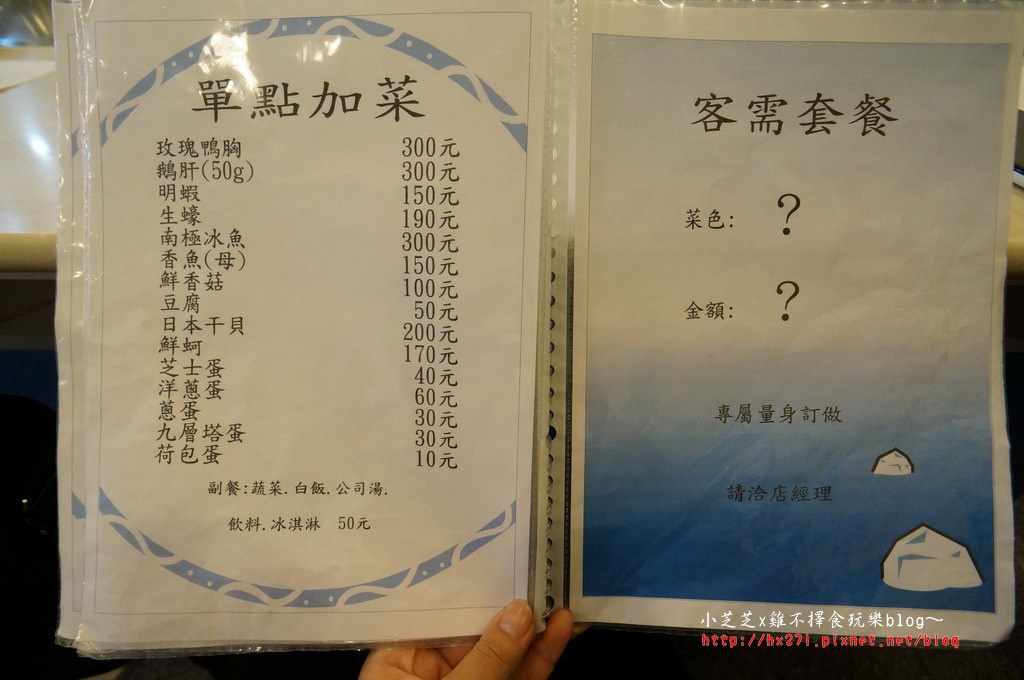 單點加菜
玫瑰鴨胸 300元
鵝肝(50g) 300元
明蝦 150元
生蠔 190元
南極冰魚 300元
香魚(母) 150元
鮮香菇 100元
豆腐 50元
日本干貝 200元
鮮蚵 170元
芝士蛋 40元
洋蔥蛋 60元
蔥蛋 30元
九層塔蛋 30元
荷包蛋 10元
副餐:蔬菜.白飯.公司湯.
飲料.冰淇淋 50元
客需套餐
菜色: ?
金額: ?
專屬量身訂做
請洽店經理
小芝芝x雞不擇食玩樂blog～
http://hx271.pixnet.net/blog